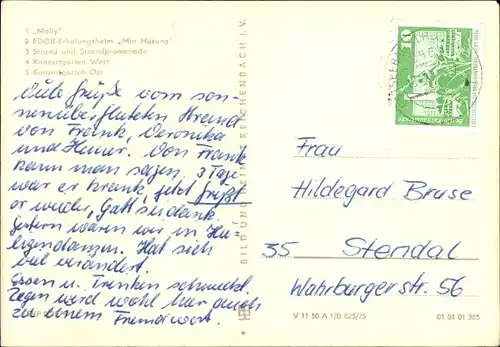 1 „Molly"
2 FDGB-Erholungsheim „Min Hüsung"
3 Strand und Strandpromenade
4 Konzertgarten West
5 Konzertgarten Ost
Viele Grüße vom son-
nenüberfluteten Strand
von Frank, Veronika
und Heiner. Von Frank
kann man sagen. 3 Tage
war er krank, jetzt frißt
er wieder, Gott sei dank.
Gestern waren wir in Hei-
ligendamm. Hat sich
viel verändert.
Essen u. Trinken schmeckt.
Regen wird wohl hier auch
zu einem Fremdwort.
BILD UND REICHENBACH I. V.
10
Frau
Hildegard Bruse
35 Stendal
Wahrburgerstr. 56
V 11 50 A 1/B 825/75
01 01 01 385